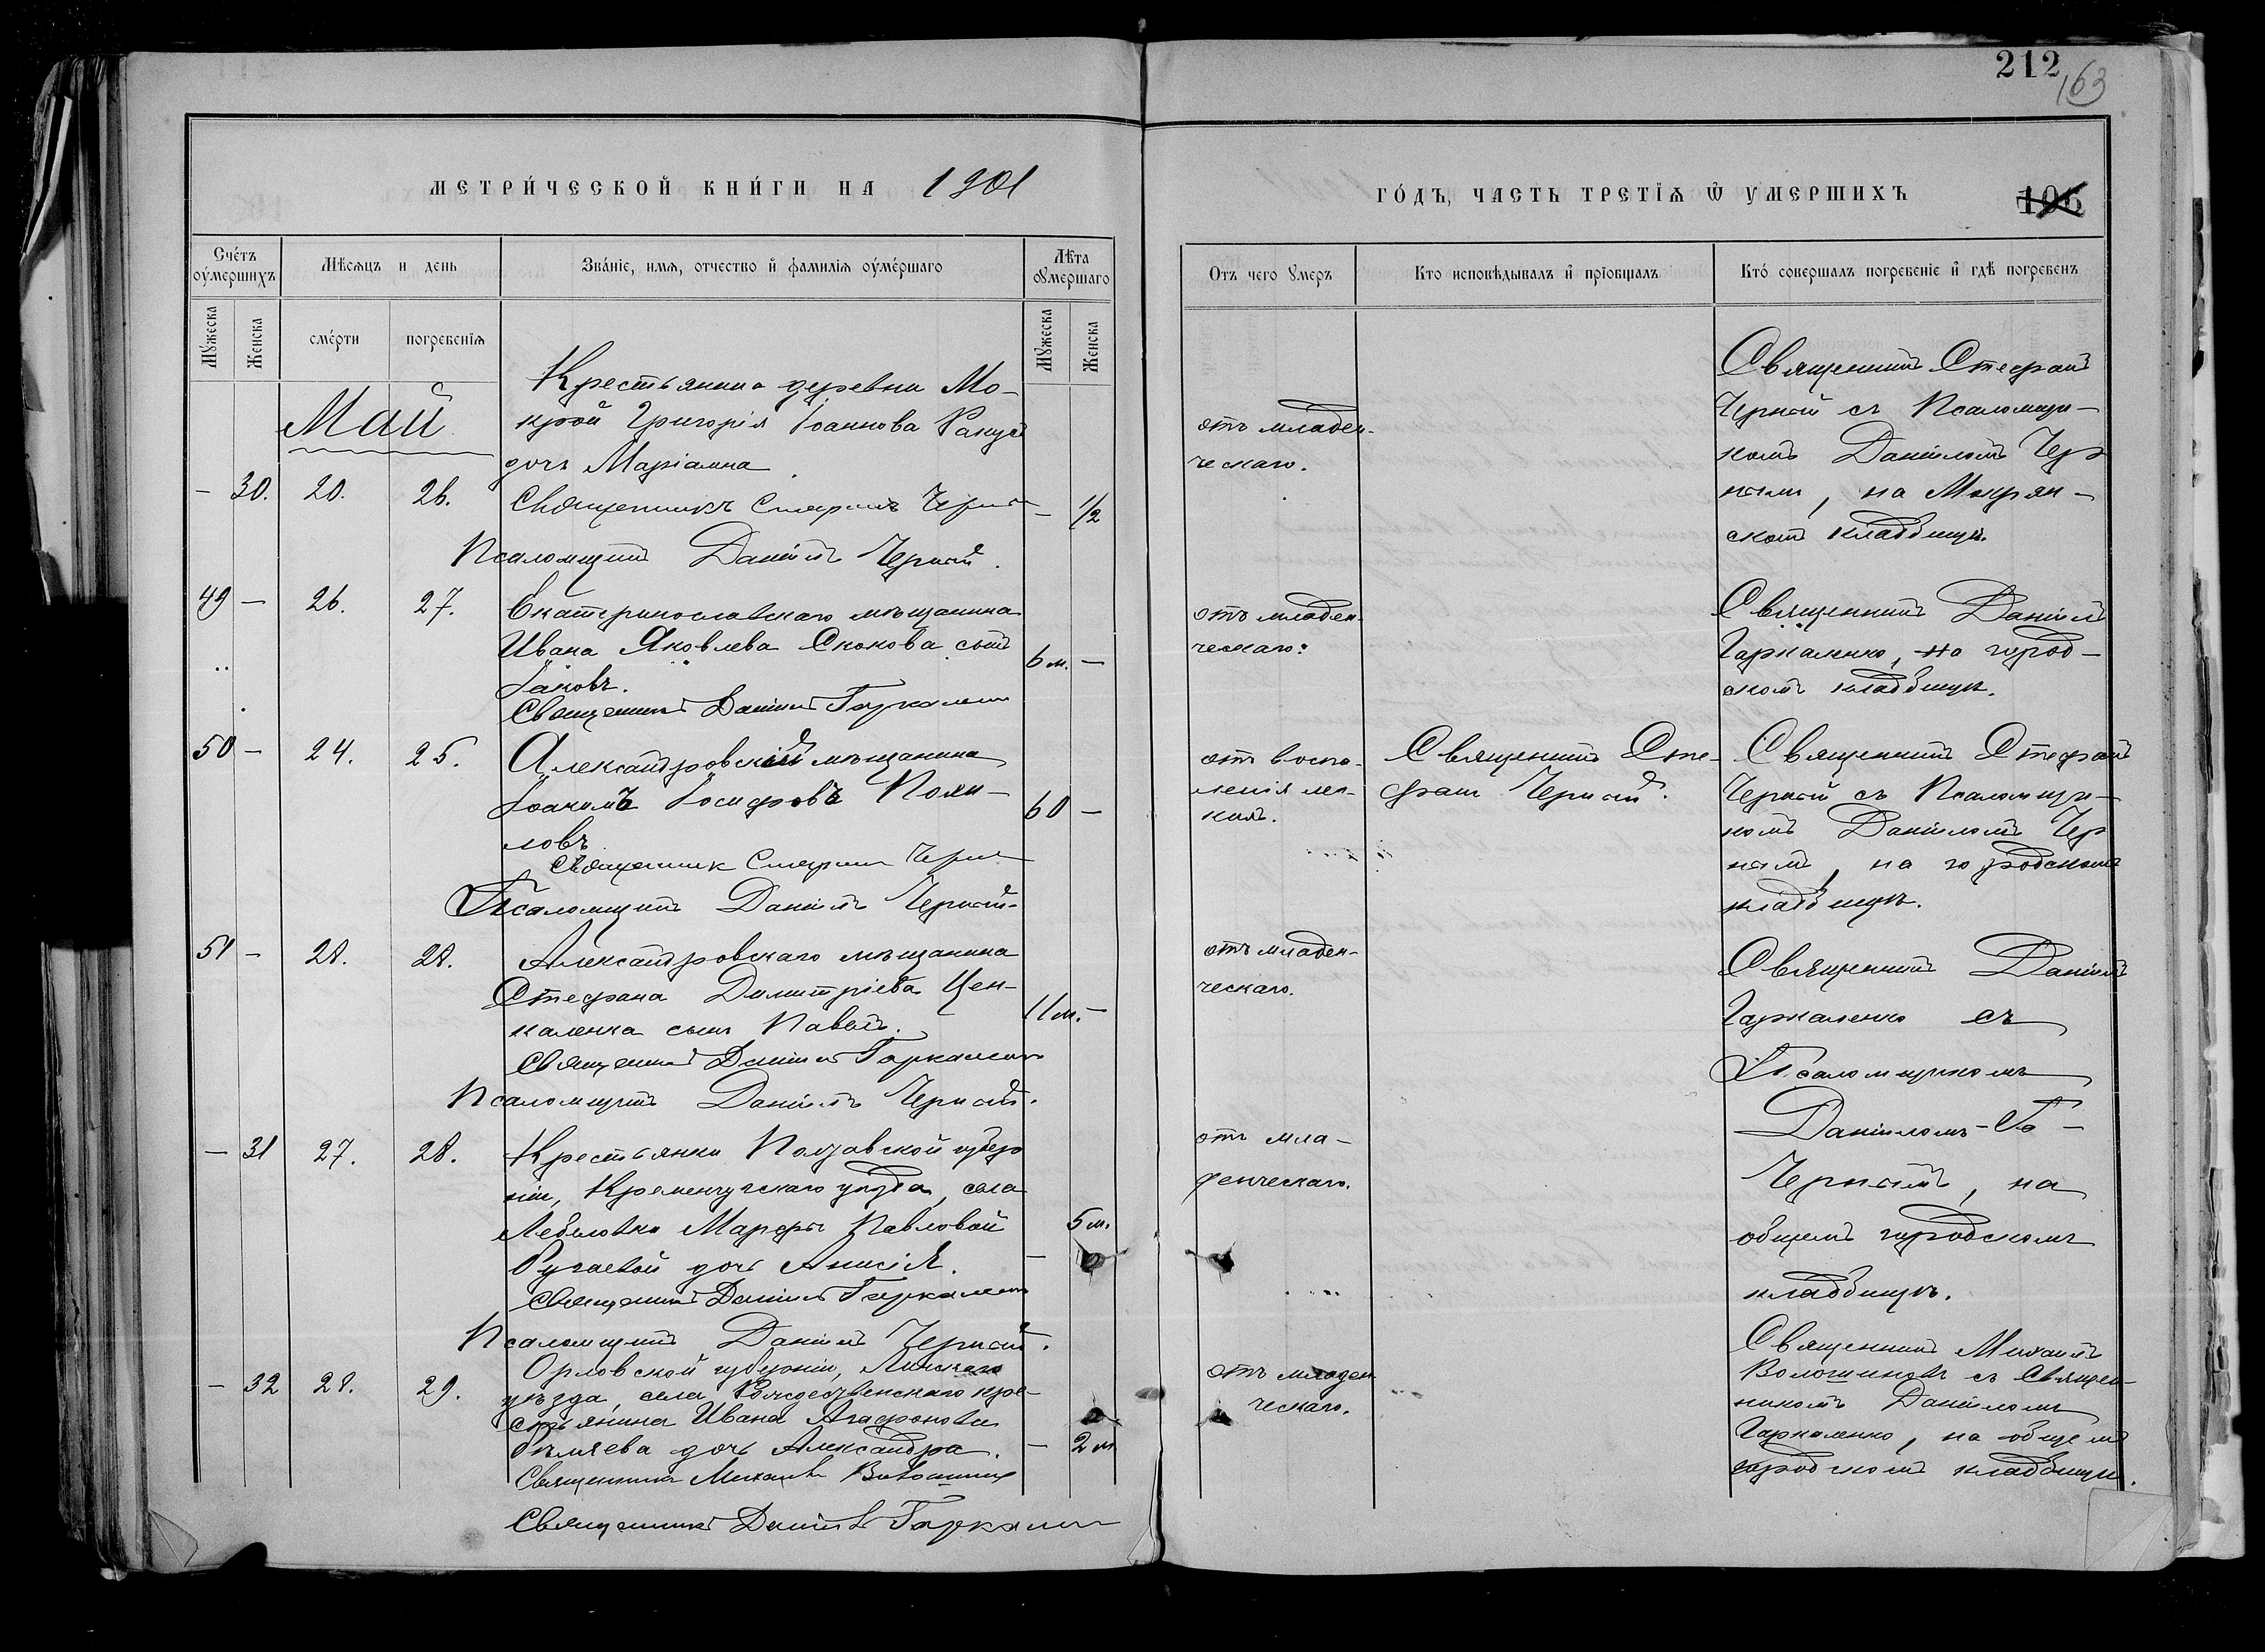 212
163
МЕТРИ́ЧЕСКОЙ КНИ́ГИ НА 1901
ГО́ДЪ, ЧАСТЬ ТРЕТІЯ Ѿ УМЕРШИХЪ
106
Сче́тъ оу҆ме́ршихъ
Мѣсяцъ и день
Зва́ніе, имя, отчество и҆ фамилія оу҆ме́ршаго
Лѣта оу҆мершаго
Мужеска
Женска
сме́рти
погребенія
Мужеска
Женска
Отъ чего умеръ
Кто исповѣдывалъ и҆ пріобщалъ
Кто́ совершалъ погребеніе и҆ гдѣ погребенъ
Май
Крестьянина деревни Мо-
крой Григорія Іоаннова
дочь Маріамна
30. 20. 26.
Священникъ Стефанъ Черный
- 1/2
Псаломщикъ Даніилъ Черный.
отъ младен-
ческаго.
Священникъ Стефанъ
Черный съ Псаломщи-
комъ Даніиломъ Чер
нымъ, на Мокрян-
скомъ кладбищѣ.
49 - 26. 27.
Екатеринославскаго мѣщанина
Ивана Яковлева Скокова сынъ
Іаковъ.
6 м. -
Священникъ Даніилъ Гаркаленко
отъ младен-
ческаго.
Священникъ Даніилъ
Гаркаленко, на город-
скомъ кладбищѣ.
50 - 24. 25.
Александровскій мѣщанинъ
Іоакимъ Іосифовъ Поян-
ловъ
60 -
Священник Стефанъ Черный
Псаломщикъ Даніилъ Черный.
отъ воспа-
ленія лег-
кихъ.
Священникъ Сте-
фанъ Черный.
Священникъ Стефанъ
Черный съ Псаломщи-
комъ Даніиломъ Чер
нымъ, на городскомъ
кладбищѣ.
51 - 28. 28.
Александровскаго мѣщанина
Стефана Димитріева Цен-
каленка сынъ Павелъ.
11 м. -
Священникъ Даніилъ Гаркаленко
Псаломщикъ Даніилъ Черный.
отъ младен-
ческаго.
Священникъ Даніилъ
Гаркаленко съ
Псаломщикомъ
Даніиломъ
Чернымъ, на
общемъ городскомъ
кладбищѣ.
- 31 27. 28.
Крестьянки Полтавской губер
ніи, Кременчугскаго уѣзда, села
Марфы Павловой
дочь Анисія.
- 5 м.
Священникъ Даніилъ Гаркаленко
Псаломщикъ Даніилъ Черный.
отъ мла-
денческаго.
- 32 28. 29.
Орловской губерніи,
уѣзда, села Рождественскаго кре-
стьянина Ивана Агафонова
дочь Александра.
- 2 м
Священникъ Михаилъ Волошиновъ
Священникъ Даніилъ Гаркаленко
отъ младен
ческаго.
Священникъ Михаилъ
Волошиновъ съ Священ-
никомъ Даніиломъ
Гаркаленко, на общемъ
городскомъ кладбищѣ.